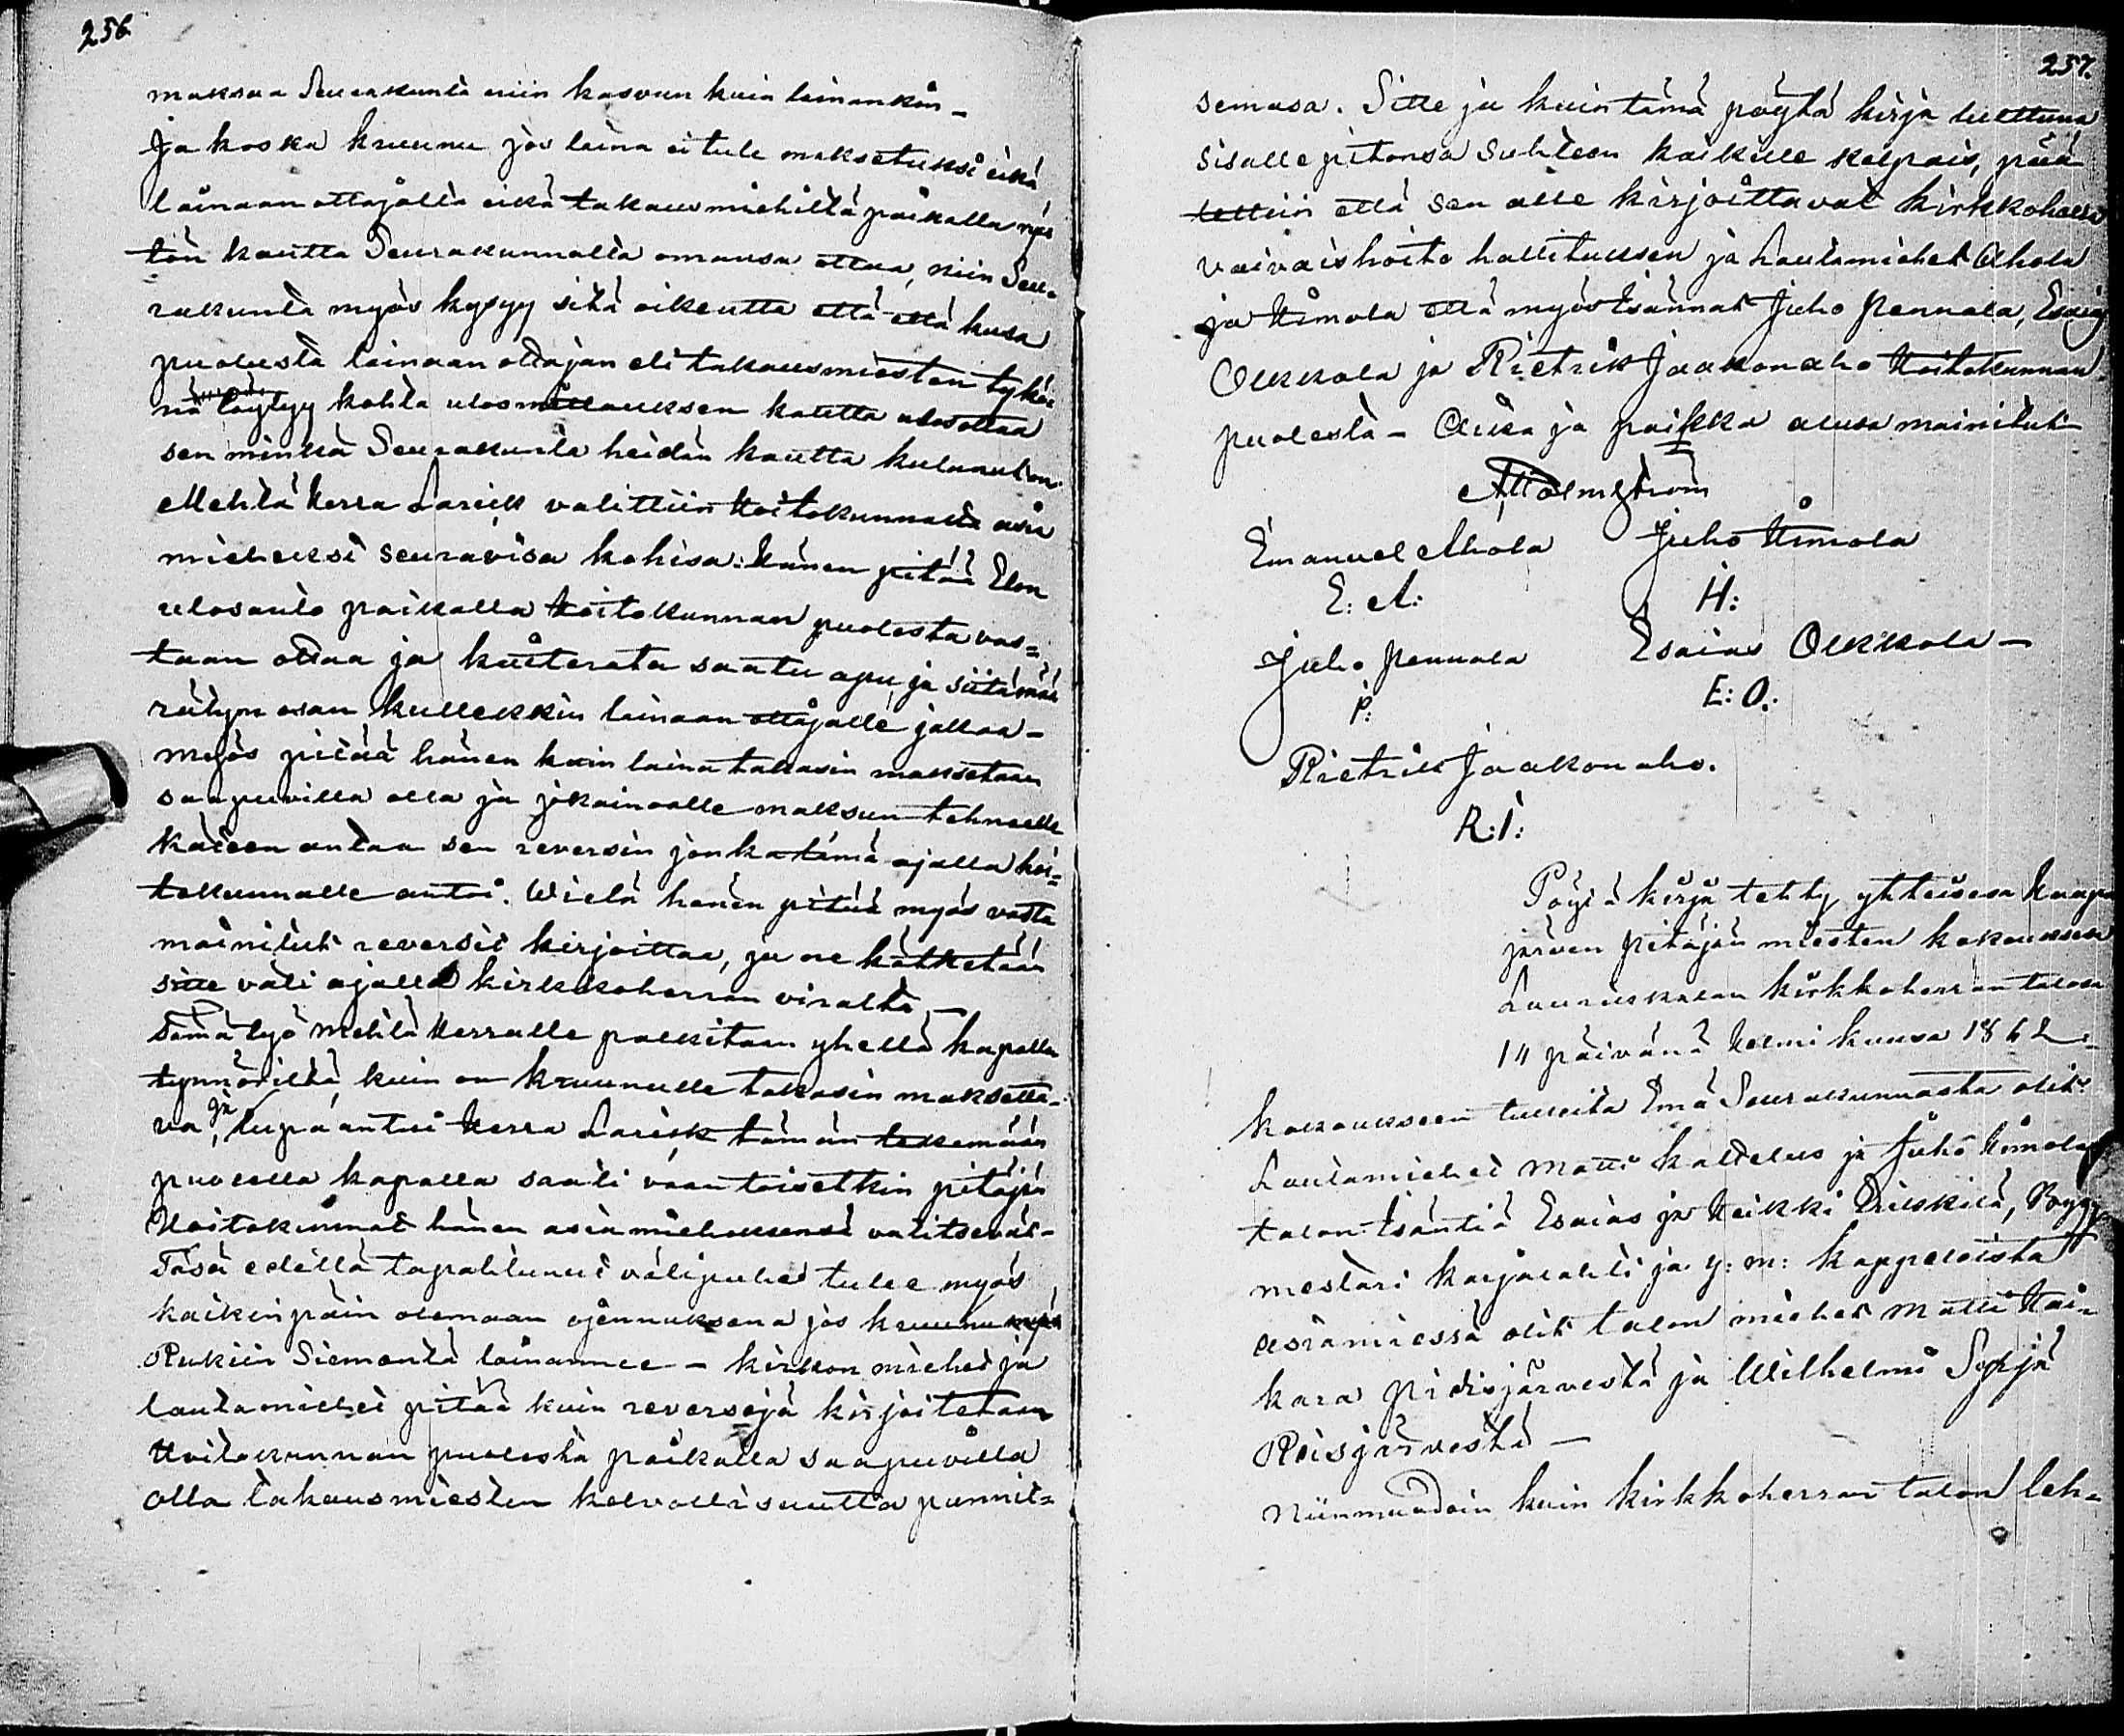 256.
maksaa Seurakunta niin kasvun kuin lainankin –
Ja koska kruunu jos laina ei tule maksetuksi eikä
lainaan ottajalla eikä takausmiehiltä paikalla myös
tön kautta Seurakunnalla omansa ottaa, niin Seu-
rakunta myös kysyy sitä oikeutta että että kusa
puolusta lainaan ottajan eli takausmiesten tykö
nä löytyy kohta ulosmittauksen kautta ulosottaa
sen minkä Seurakunta heidän kautta kulunut on.
Mehtä Herra Larick valittiin Hoitokunnalta asia
mieheksi seuravisa kohisa: Hänen pitää Elon
ulosanto paikalla Hoitokunnan puolesta vas=
taan ottaa ja kuiterata saatu apu, ja siitä mää
rätyn osan kullekkin lainaan ottajalle jakaa –
myös pitää hänen kuin laina takasin maksetaan
saapuvilla olla ja jokainoalle maksun tehneelle
käteen antaa sen reversin jonka tämä ajalla hoi=
tokunnalle antoi. Wielä hänen pitää myös vasta
mainitut reversit kirjoittaa, ja ne kätketään
sitte väli ajalla kirkkoherran viralta –
Tämä työ Mehtä Herralle palkitaan yhellä kapalla
tynnöriltä, kuin on kruunulle takasin maksetta-
va, ja lupa antoi Herra Larick tämän tekemään
puolella kapalla saati vaan toisetkin pitäjän
Hoitokunnat hänen asiamieheksensä valitsevat –
Täsä edellä tapahtunut välipuhe tulee myös
kaikin päin olemaan ojennuksena jos kruunu myös
Rukiin Siementä lainannee – kirkon miehet ja
lautamiehet pitää kuin reversejä kirjoitetaan
Hoitokunnan puolesta paikalla saapuvilla
olla takausmiesten kelvollisuutta punnit=
257.
semasa. Sitte ja kuin tämä pöytä kirja luettuna
sisällepitonsa suhteen kaikille kelpais, pää
tettiin että sen alle kirjoittavat kirkkoherra
vaivaishoito hallituksen ja Lautamiehet Ahola
ja Himola että myös Isännät Juho Pennala, Esaias
Olkkola ja Pietrik Jaakonaho Hoitokunnan
puolesta – Aika ja paikka alusa mainitut –
Emanuel Ahola Juho Himola
E: A: H:
Juho Pennala Esaias Olkkola –
P: E: O.:
Pietrik Jaakonaho.
R: I:
Pöytä kirja tehty yhteisesä Haapa
järven pitäjän miesten kokouksesa
kirkkoherran talosa
14 päivänä Helmi kuusa 1862 –
Kokoukseen tulleita Emä Seurakunnasta olit:
Lautamiehet Matti Kaltelus ja Juho Himola
talon Isäntiä Esaias ja Heikki
mestari Karjalahti ja y: m: kappeleista
asiamiessä olit talon miehet Matti Hai-
kara Pidisjärvestä ja Wilhelmi
Reisjärvestä –
Niinmuodoin kuin kirkkoherran talon leh=